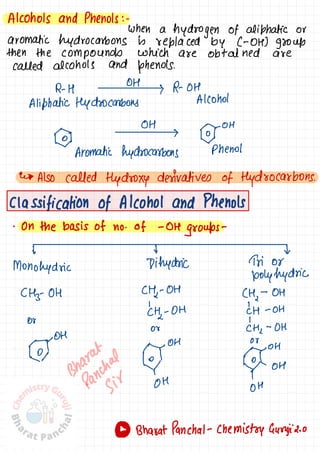 Alcohols and Phenols:-
when a hydrogen of aliphatic or
aromatic hydrocarbons is replaced by (-OH) group
then the compounds which are obtained are
called alcohols and phenols.
R-H OH R-OH
Aliphatic Hydrocarbons Alcohol
OH OH
Aromatic hydrocarbons Phenol
Also called Hydroxy derivatives of Hydrocarbons.
Classification of Alcohol and Phenols
• On the basis of no. of -OH groups-
Monohydric Dihydric Tri or
polyhydric
CH3-OH CH2-OH CH2-OH
CH2-OH CH-OH
or or CH2-OH
or
OH OH OH
OH
OH OH
Bharat
Panchal
Sir
Chemistry Guruji
Bharat Panchal
Bharat Panchal - Chemistry Guruji 2.0